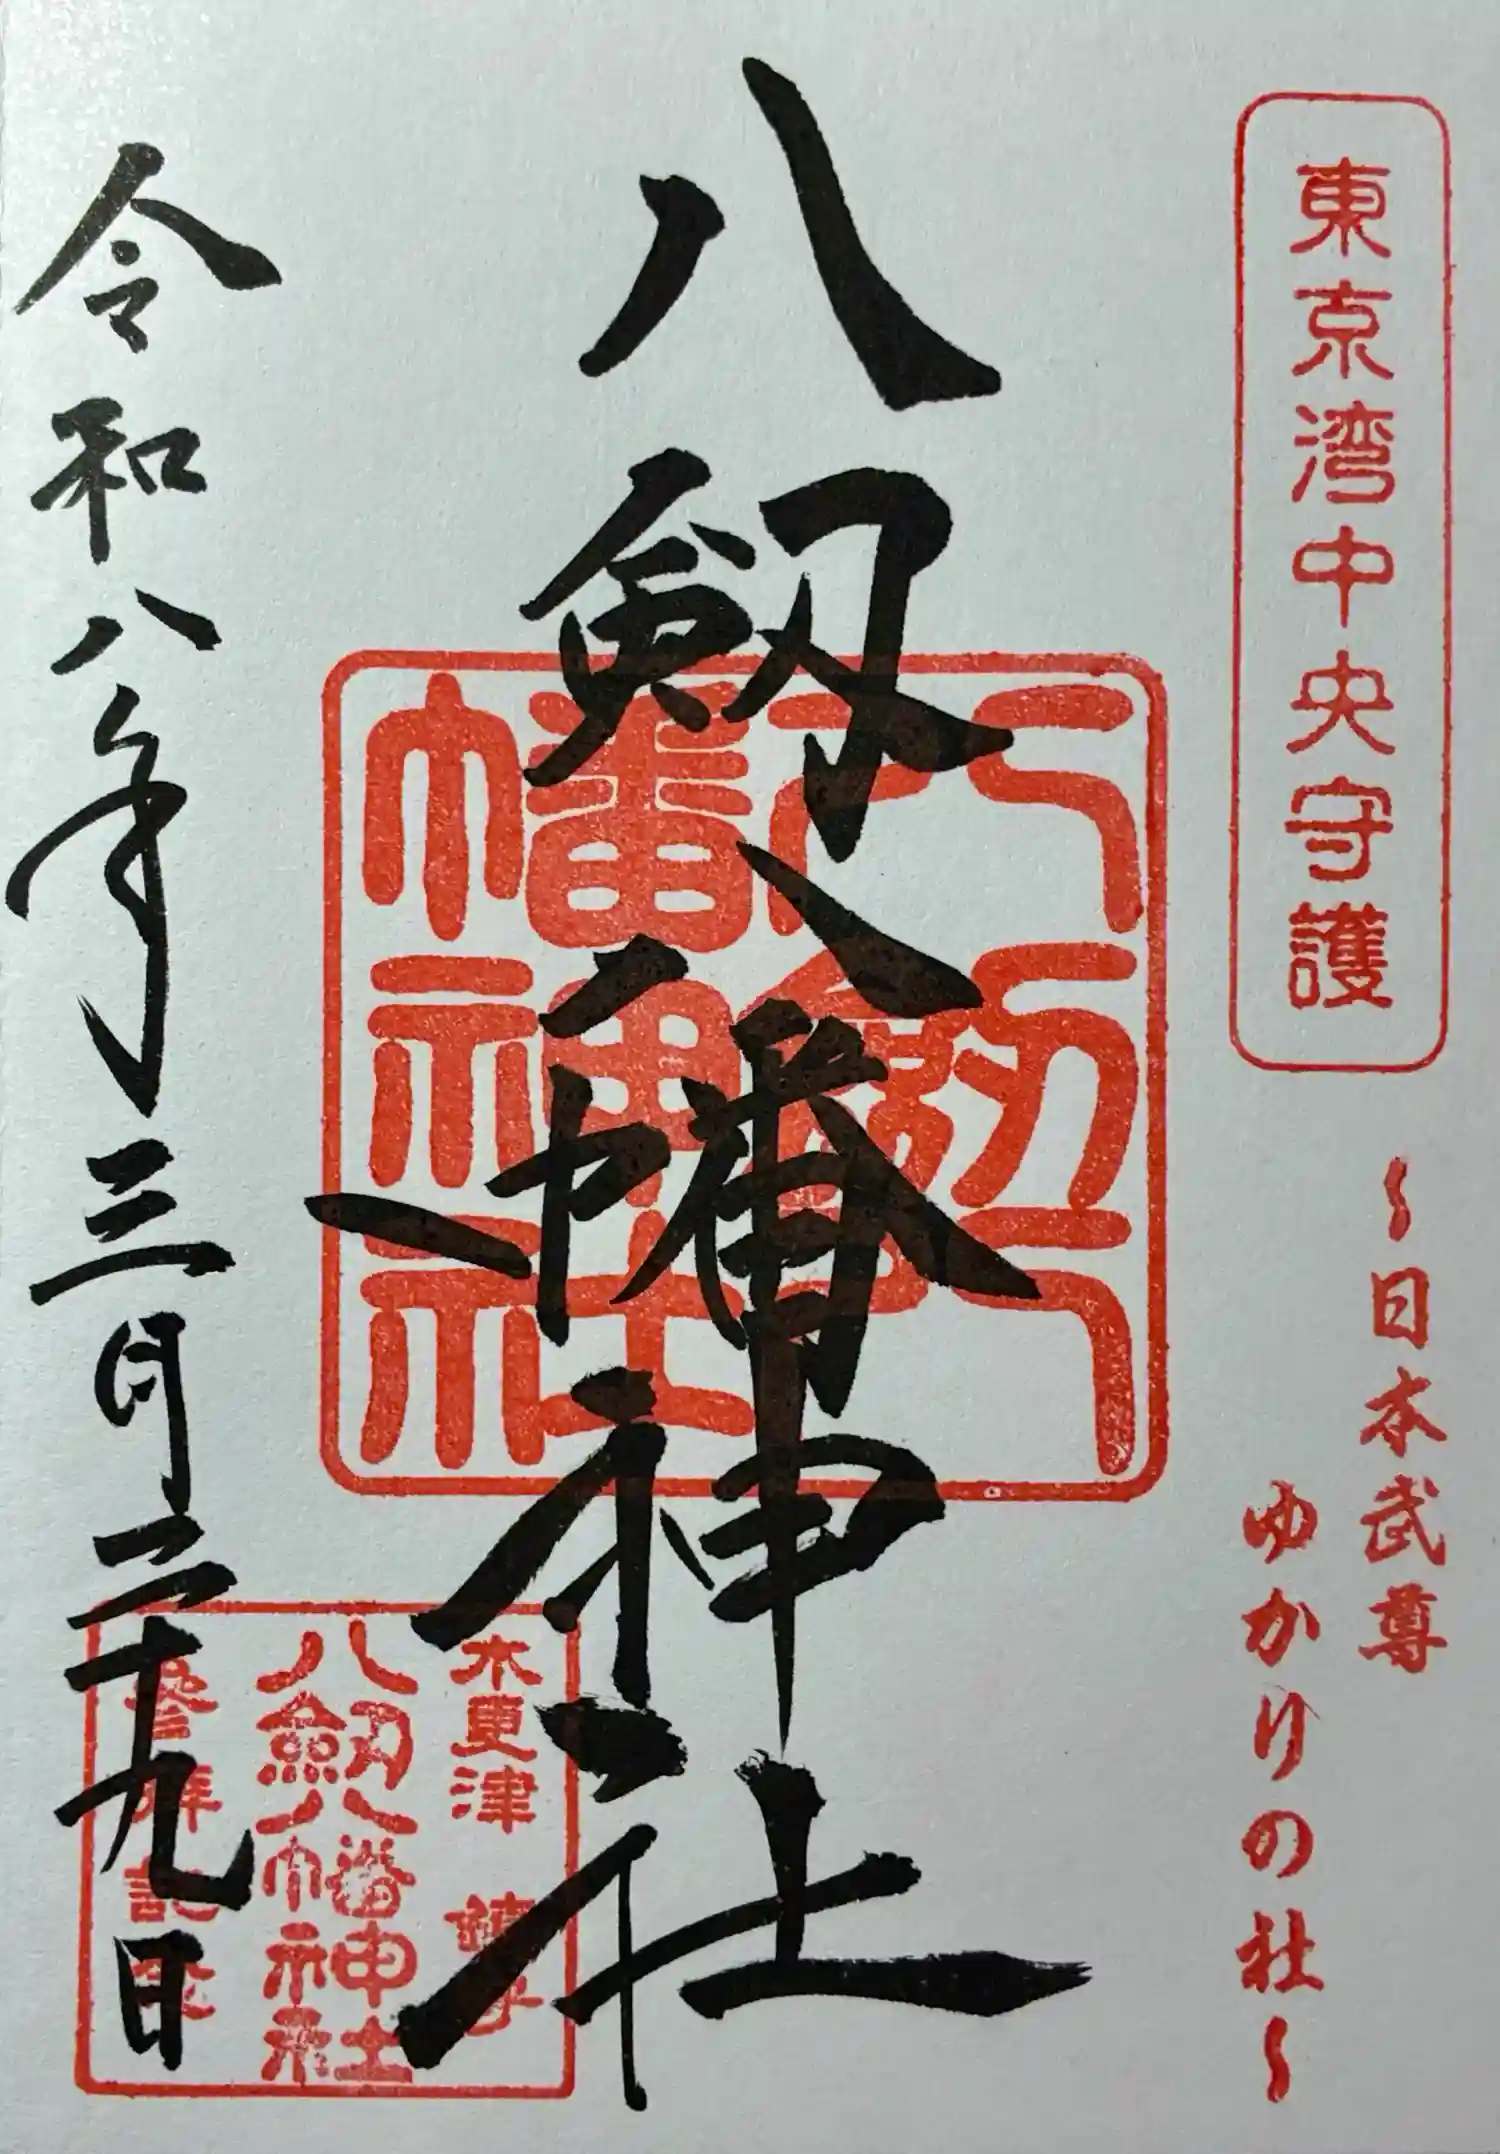 東京湾中央守護
～日本武尊
ゆかりの社～
八剱八幡神社
八剱八
幡神社
木更津 鎮守
八剱八幡神社
参拝記念
令和八年三月二十九日